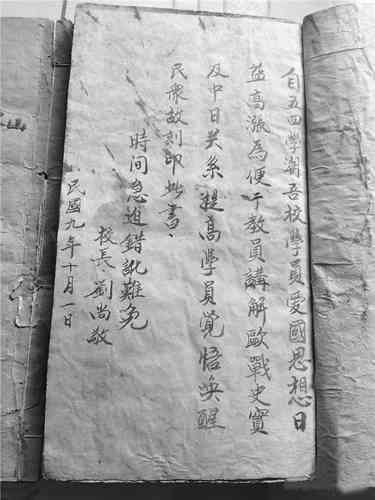 自五四學潮吾校學員愛國思想日
益高漲為便于教員講解歐戰史實
及中日关系提高學員覺悟喚醒
民衆故刻印此書、
時间急迫錯訛難免
校長劉尚敬
民國九年十月一日